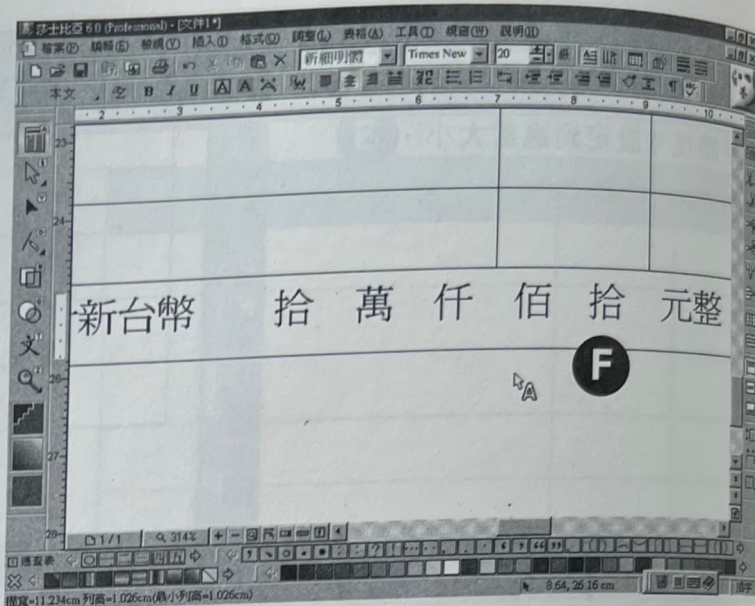 莎士比亞 6.0 (Professional) - [文件1*]
檔案(F) 編輯(E) 檢視(V) 插入(I) 格式(O) 調整(L) 表格(A) 工具(T) 視窗(W) 說明(H)
新細明體 Times New 20
本文 B I U A A
2 3 4 5 6 7 8 9 10
23
24
新台幣 拾 萬 仟 佰 拾 元整
F
26
27
28
文
1/1 314%
8.64, 26.16 cm
欄寬=11.234cm 列高=1.026cm(最小列高=1.026cm)